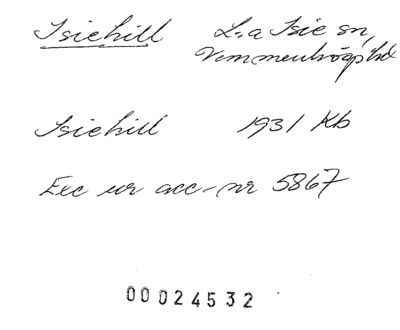 Isiehill L:a Isie sn,
Vemmenhögs hd
Isiehill 1931 Kb
Exc ur acc-nr 5867
00024532